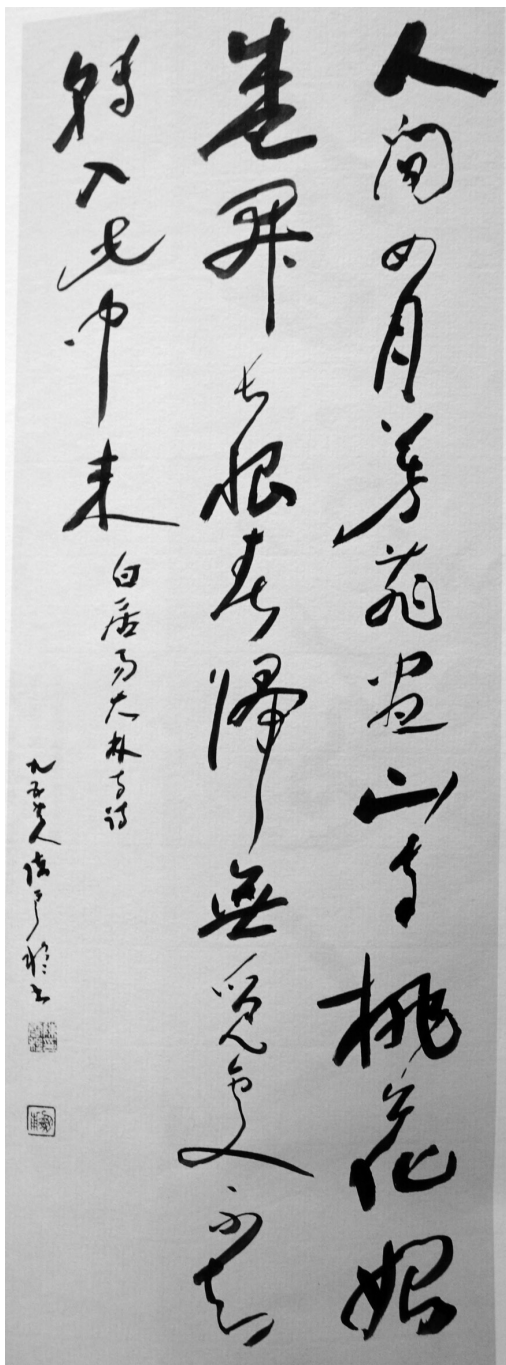 人間四月芳菲盡山寺桃花始
盛開長恨春歸無覓處不知
轉入此中來
白居易大林寺詩
九五老人書